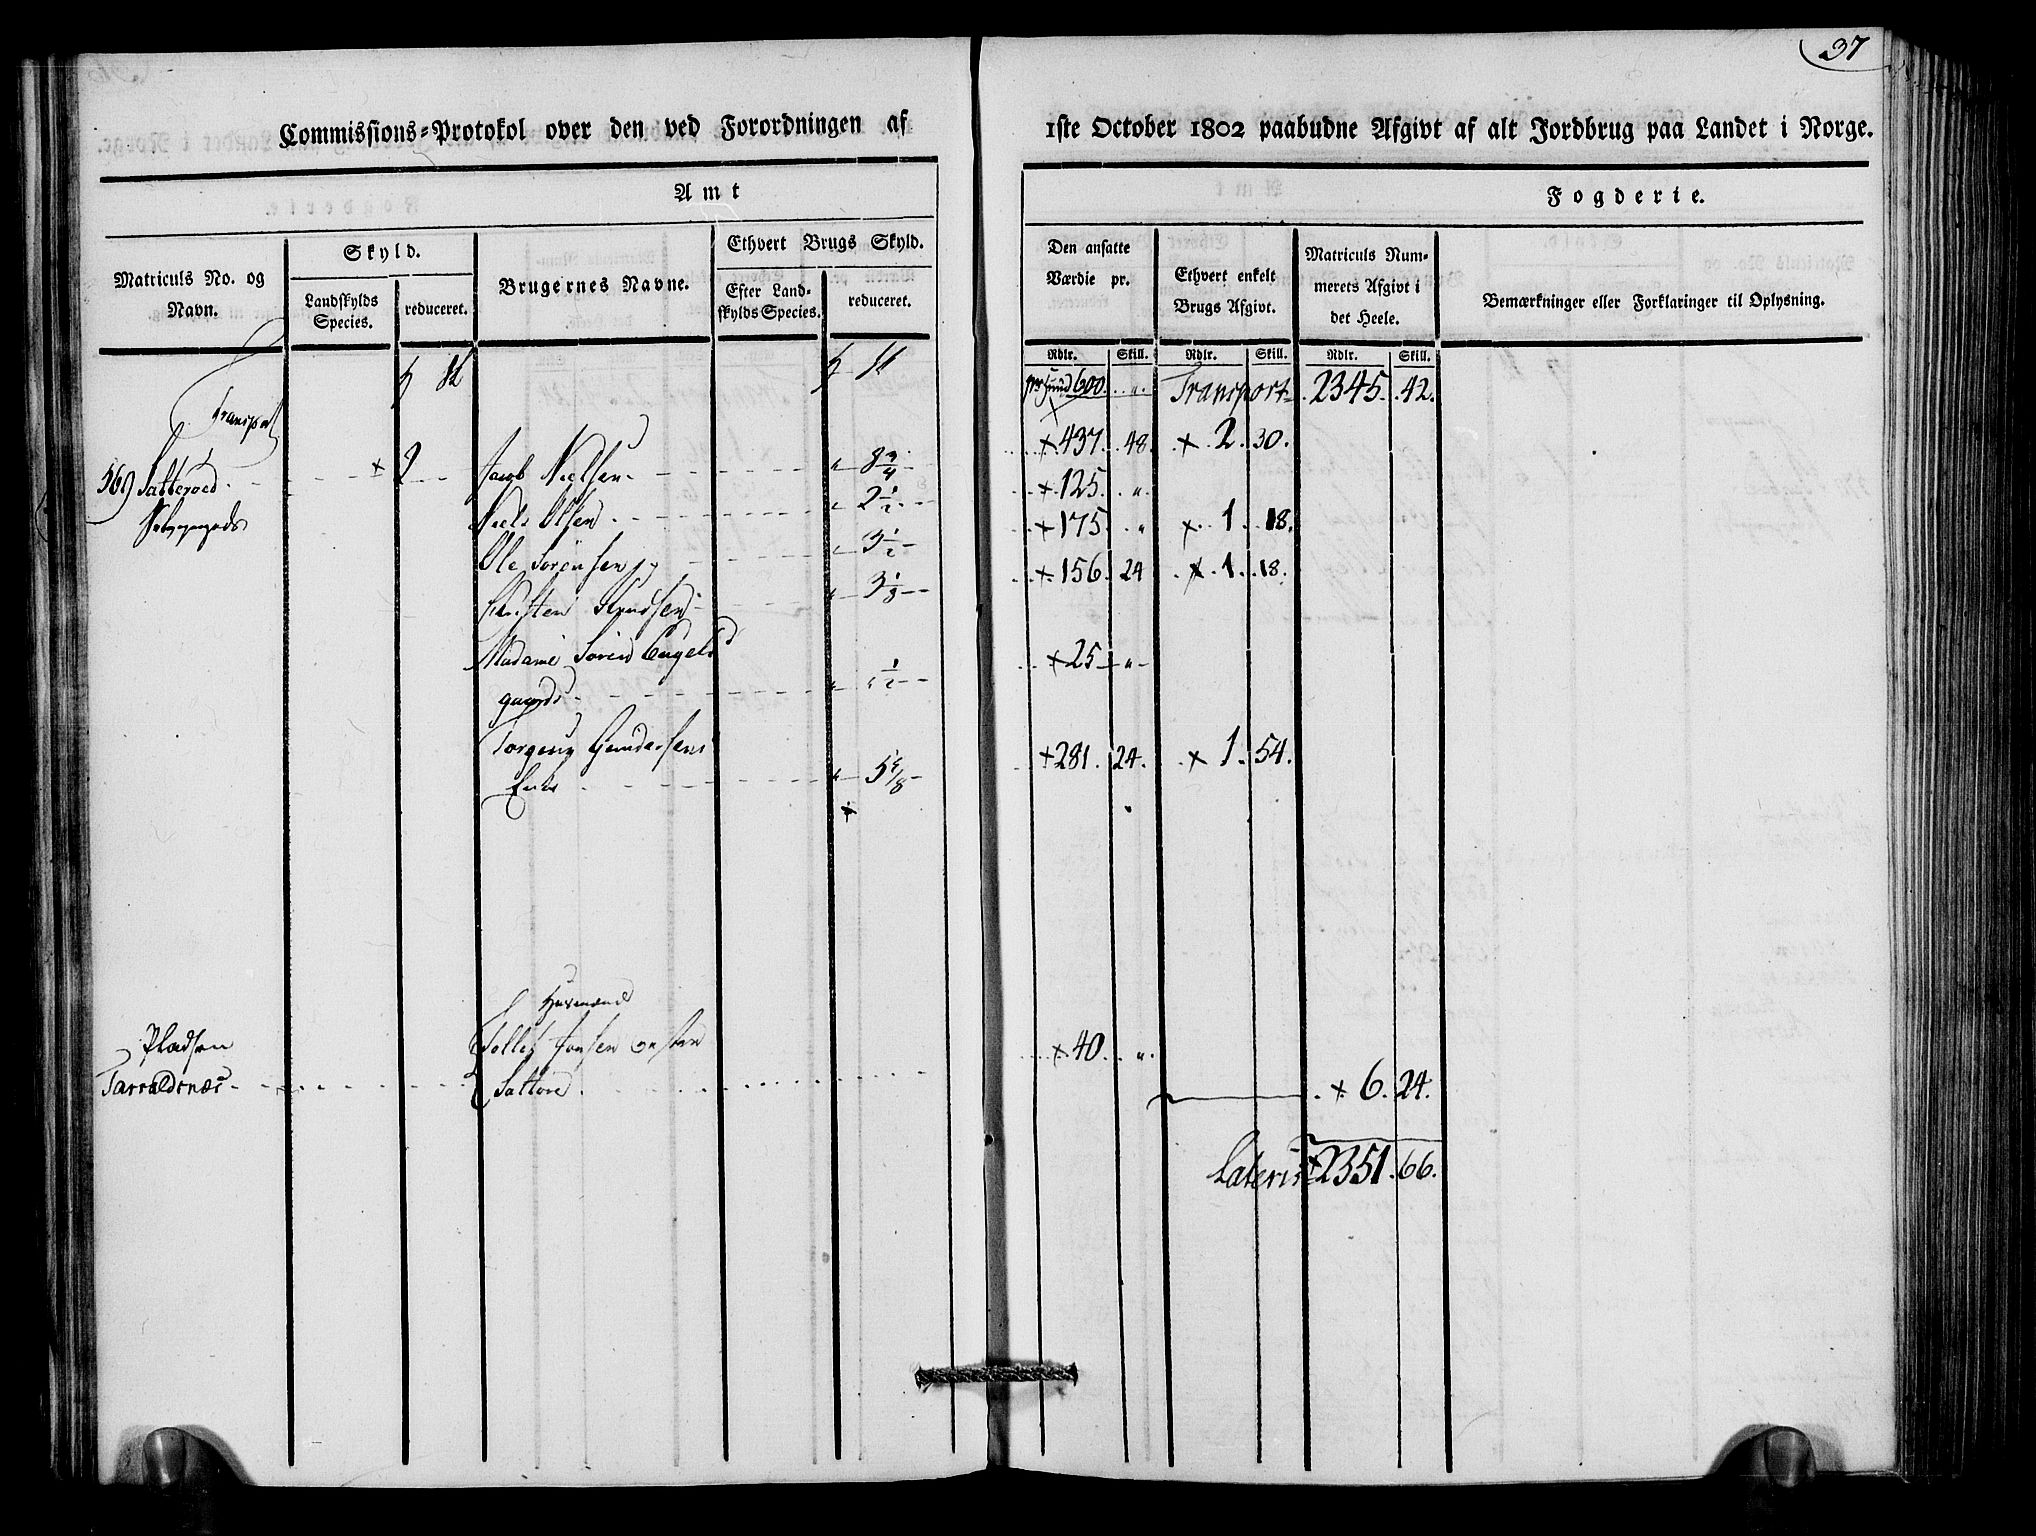 37
Commissions-Protokol over den ved Forordningen af
1ste October 1802 paabudne Afgivt af alt Jordbrug paa Landet i Norge.
Amt
Fogderie.
Matriculs No. og Navn.
Skyld.
Landskylds Species.
reduceret.
Brugernes Navne.
Ethvert Brugs Skyld.
Efter Landskylds Species.
reduceret.
Den ansatte Værdie pr.
Ethvert enkelt Brugs Afgivt.
Matriculs Nummerets Afgivt i det Heele.
Bemærkninger eller Forklaringer til Oplysning.
Rdlr. Skill. Rdlr. Skill. Rdlr. Skill.
Transport
600. „. Transport 2345. 42.
569 Satteroed + 2 Jacob Nielsen „ 8 3/4 + 437. 48. + 2. 30.
Niels Olsen „ 2 1/2 + 125. „.
Ole Sörensen „ 3 1/2 + 175. „ + 1. 18.
Knudsen „ 3 1/8 + 156. 24 + 1. 18.
Madame Sören Engels
gaards „ 1/2 + 25 „
Gundersens
Enke „ 5 5/8 + 281. 24. + 1. 54.
+
Husmænd
Pladsen Tollef Jonsen + 40. „.
Tarraldsnæs Sattore + 6. 24.
Lateris + 2351. 66.